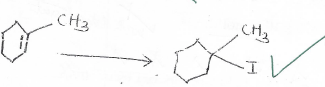 CH3
CH3
I